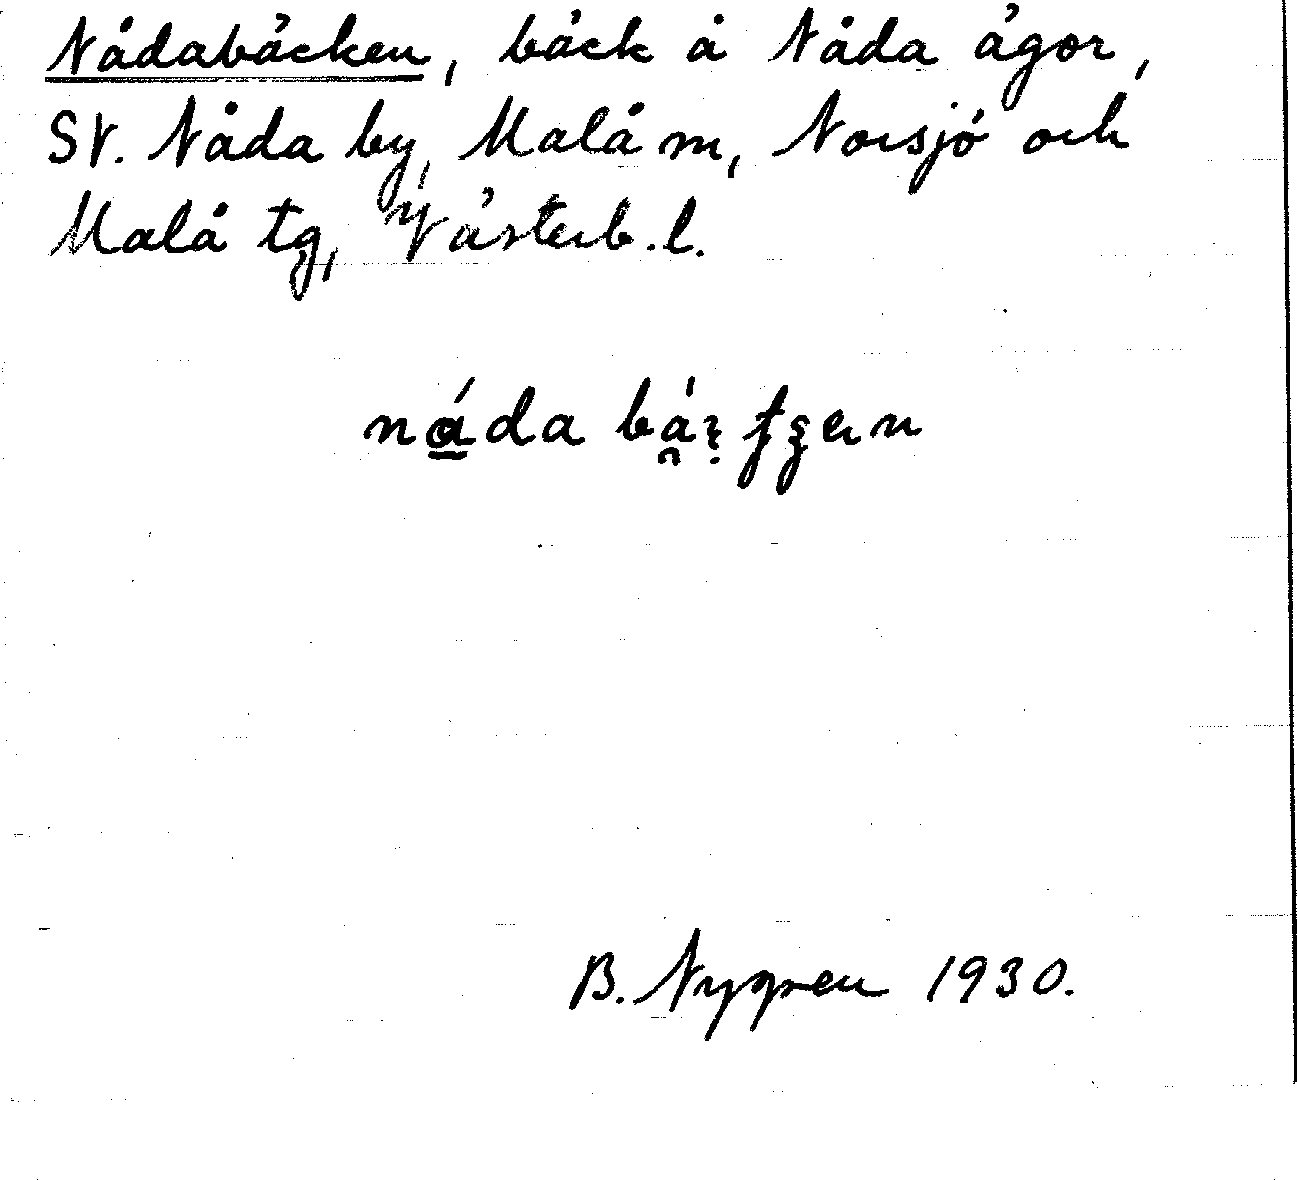 Nådabäcken, bäck å Nåda ägor,
SV. Nåda by, Malå m, Norsjö och
Malå tg, Västerb.l.
B. Nygren 1930.